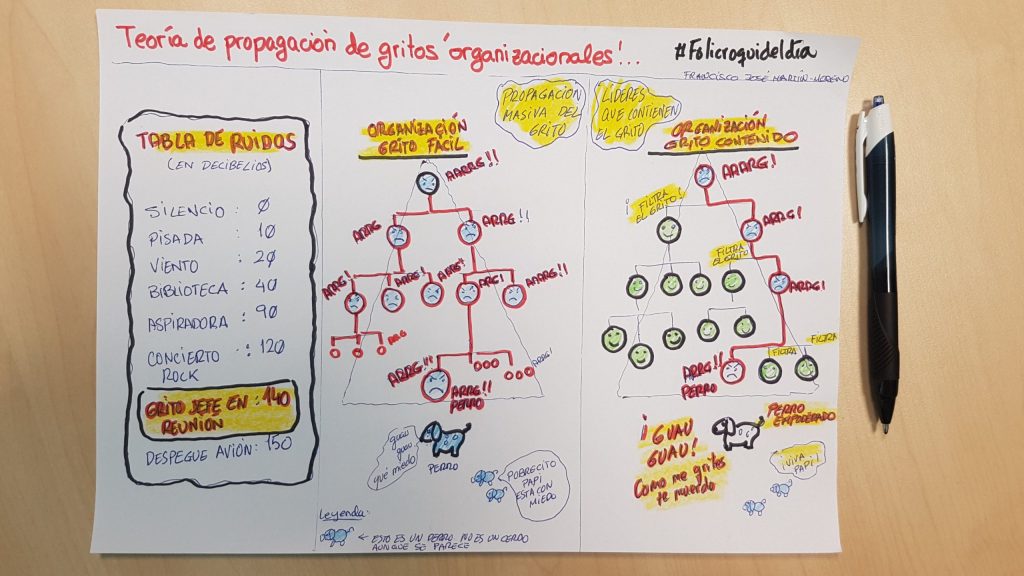 Teoría de propagación de gritos 'organizacionales'...
#Folicroquideldía
FRANCISCO JOSÉ MARTÍN-MORENO
TABLA DE RUIDOS
(EN DECIBELIOS)
SILENCIO : 0
PISADA : 10
VIENTO : 20
BIBLIOTECA : 40
ASPIRADORA : 90
CONCIERTO : 120
ROCK
GRITO JEFE EN : 140
REUNIÓN
DESPEGUE AVIÓN: 150
PROPAGACIÓN
MASIVA DEL
GRITO
ORGANIZACIÓN
GRITO FÁCIL
AARRG!!
ARRG
ARRG!!
ARRG!
ARRG!
ARRG!!
ARG!
AARRG!!
ARG
ARRG!
ARRG!!
ARRG!!
PERRO
guau
guau
qué miedo
PERRO
POBRECITO
PAPI
ESTÁ CON
MIEDO
Leyenda:
← ESTO ES UN PERRO. NO ES UN CERDO
AUNQUE SE PARECE
LÍDERES
QUE CONTIENEN
EL GRITO
ORGANIZACIÓN
GRITO CONTENIDO
AAARRG!
¡ FILTRA
EL GRITO!
ARRG!
FILTRA
EL GRITO
ARRG!
FILTRA
FILTRA
ARRG!!
PERRO
¡GUAU
GUAU!
Como me grites
te muerdo
PERRO
EMPODERADO
¡VIVA
PAPI!